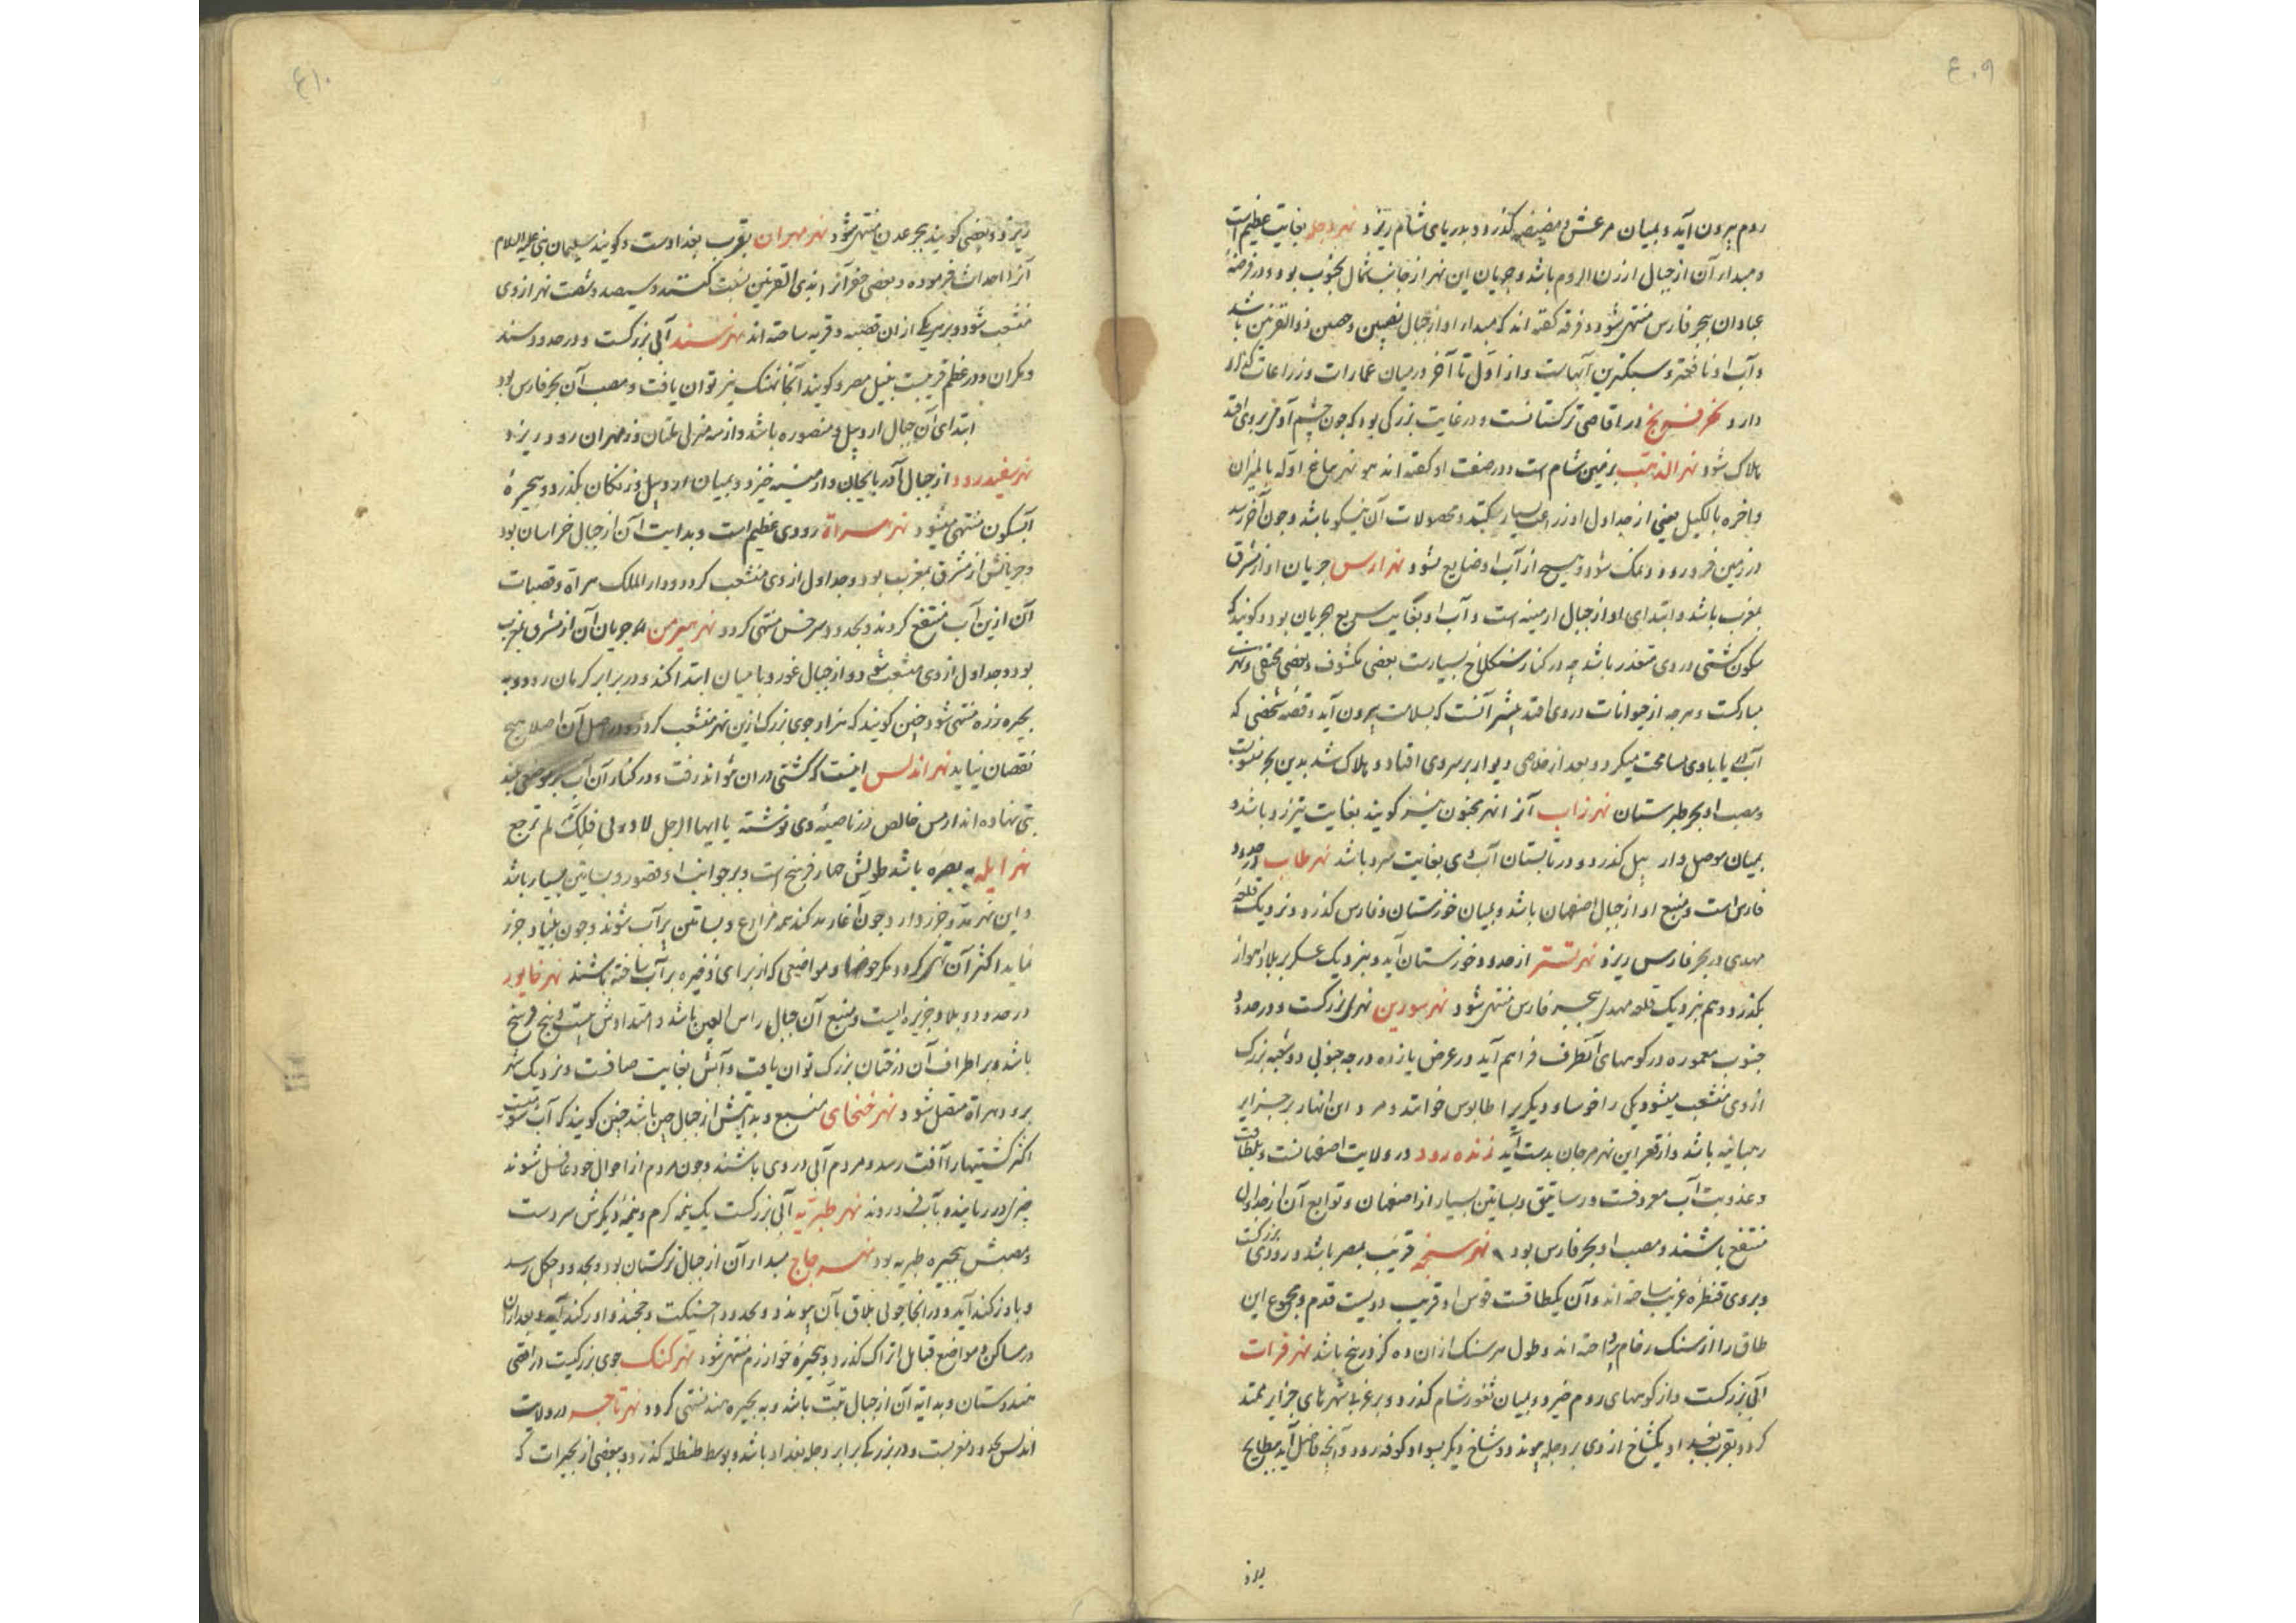 ۴۰۹
روم بیرون آید و بمیان مرعش و مصیصه گذرد و بدریای شام ریزد نهر دجله بغایت عظیم است
و مبداء آن از جبال ارزن الروم باشد و جریان این نهر از جانب شمال بجنوب بود و در فرضهٔ
عبادان ببحر فارس منتهی شود و فرقه گفته اند که مبداء او از جبال نصیبین و حصن ذوالقرنین باشد
و آب او نافعتر و سبکترین آبهاست و از اول تا آخر در میان عمارات و زراعات گذر
دارد در اقاصی ترکستانست و در غایت بزرگی بود که چون چشم آدمی بروی افتد
هلاک شود نهر الذهب بزمین شام است و در صفت او گفته اند هو نهر یباع اوله بالمیزان
و اخره بالکیل یعنی از جداول او زراعت بسیار میکنند و محصولات آن نیکو باشد و چون آخر رسد
در زمین فرو رود و نمک شود و هیچ از آب او ضایع نشود نهر ارس جریان او از مشرق
بمغرب باشد و ابتدای او از جبال ارمینه است و آب او بغایت سریع الجریان بود و گویند که
سکون کشتی در وی متعذر باشد چه در کنار سنگلاخ بسیارست بعضی مکشوف و بعضی مختفی و نهری
مبارکست و هرچه از حیوانات در وی افتد بیشتر آنست که بسلامت بیرون آید و قصهٔ شخصی که
آب با وی مسامحت میکرد و بعد از خلاصی دیوار بر وی افتاد و هلاک شد بدین بحر منسوبست
و مصب او بحر طبرستان نهر زاب آنرا نهر مجنون نیز گویند بغایت تیزرو باشد و
بمیان موصل و اربیل گذرد و در تابستان آب وی بغایت سرد باشد نهر طاب در حدود
فارس است و منبع او از جبال اصفهان باشد و بمیان خوزستان و فارس گذرد و نزدیک قلعهٔ
مهدی در بحر فارس ریزد نهر تستر از حدود خوزستان آید و بنزدیک عسکر بر بلاد اهواز
بگذرد و هم بنزدیک قلعه مهدی ببحر فارس منتهی شود نهر سورین نهری بزرگست و در حدود
جنوب معموره در کوههای آنطرف فراهم آید در عرض یازده درجه جنوبی دو شعبه بزرک
از وی منشعب میشود یکی را خوسا و دیگریرا طابوس خوانند و مر و این انهار بر جزایر
رهبانیه باشد و از قعر این نهر مرجان بدست آید زنده رود در ولایت اصفهانست و بلطافت
و عذوبت آب معروفست و رساتیق و بساتین بسیار از اصفهان و توابع آن از جداول
منتفع باشند و مصب او بحر فارس بود نهر سنجه قریب بمصر باشد و رودی بزرگست
و بروی قنطره غریب ساخته اند و آن یکطاقست قوس او قریب دویست قدم و مجموع این
طاق را از سنک رخام پرداخته اند و طول هر سنک از ان ده گز در پنج باشد نهر فرات
آبی بزرگست و از کوههای روم خیزد و بمیان ثغور شام گذرد و بر غربی شهرهای جزایر ممتد
گردد بقرب بغداد یکشاخ از وی بر دجله پیوندد و شاخ دیگر بسواد کوفه رود و آنچه فاضل آید ببطایح
۴۱۰
ریزد و بعضی گویند ببحر عدن منتهی شود نهر مهران بقرب بغدادست و گویند سلیمان نبی علیه السلام
آنرا احداث فرموده و بعضی حفر آنرا بذی القرنین نسبت کنند و سیصد و شصت نهر از وی
منشعب شود و بر هر یکی از ان قصبه و قریه ساخته اند نهر سند آبی بزرگست و در حدود سند
و مکران و در عظم قریبست بنیل مصر و گویند آنجا نهنک نیز توان یافت و مصب آن بحر فارس بود
ابتدای آن جبال اردبیل و منصوره باشد و از سه منزلی ملتان و نزد مهران رود ریزد
نهر سفیدرود از جبال آذربایجان و ارمینیه خیزد و بمیان اردبیل و زنکان گذرد و ببحیرهٔ
آبسکون منتهی میشود نهر هراة رودی عظیم است و بدایت آن از جبال خراسان بود
و جریانش از مشرق بمغرب بود و جداول از وی منشعب گردد و دار الملک هراة و قصبات
آن ازین آب منتفع گردند و بحدود سرخس منتهی گردد نهر هیرمن جریان آن از مشرق بمغرب
بود و جداول از وی منشعب شود و از جبال غور و بامیان ابتدا کند و در برابر کرمان رود و به
بحیره زره منتهی شود چنین گویند که هزار جوی بزرک ازین نهر منشعب گردد و در اصل آن اصلا هیچ
نقصان نیاید نهر اندلس اینست که کشتی در ان نتواند رفت و در کنار آن آب بر موضعی بلند
بتی نهاده اند از مس خالص در ناصیهٔ وی نوشته یا ایها الرجل لا ورائی فانک لم ترجع
نهر ایله به بصره باشد طولش چهار فرسخ است و بر جوانب او قصور و بساتین بسیار باشد
و این نهر مد و جزر دارد چون آغاز مد کند همه مزارع و بساتین پر آب شوند و چون بنیاد جزر
نماید اکثر آن تهی گردد مگر حوضها و مواضعی که از برای ذخیره پر آب ساخته باشند نهر خابور
در حدود بلاد جزیره ایست و منبع آن جبال راس العین باشد و امتدادش بیست و پنج فرسخ
باشد و بر اطراف آن درختان بزرک توان یافت و آبش بغایت صافست و نزدیک شهر
برود هراة متصل شود نهر خنخای منبع و بدایتش از جبال چین باشد چنین گویند که آب
اکثر کشتیها را آفت رسد و مردم آبی در وی باشند و چون مردم از احوال خود غافل شوند
چیزی در ربایند و بآب فرو روند نهر طبریه آبی بزرگست یک نیمه گرم و نیمهٔ دیگرش سردست
و مصبش ببحیره طبریه بود نهر چاچ مبداء آن از جبال ترکستان بود و بحدود چگل رسد
و باوزکند آید و در انجا جوئی بلاق بآن پیوندد و بحدود اخسیکت و خجند و اورکند آید و بعد ازان
در مساکن و مواضع قبایل اتراک گذرد و ببحیره خوارزم منتهی شود نهر کنک جوی بزرگیست در اقصی
هندوستان و بدایة آن از جبال تبت باشد و به بحیره هند منتهی گردد نهر تاجه در ولایت
اندلس بحد و مغربست و در بزرگی برابر دجله بغداد باشد و بوسط طلیطله گذرد و بعضی از بحیرات که